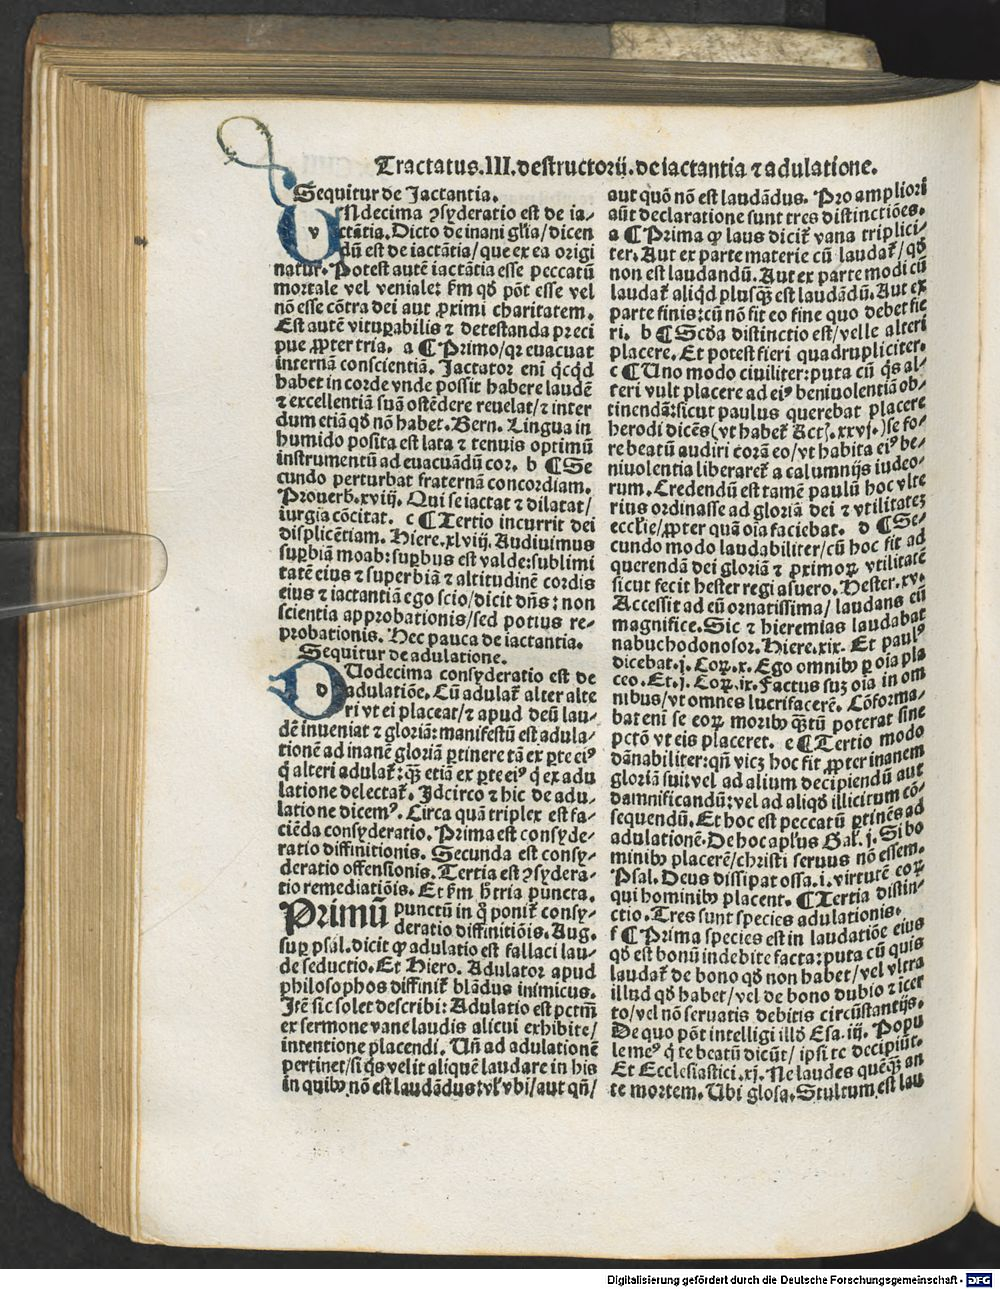 Tractatus.III.destructorij.de iactantia ⁊ adulatione.
Sequitur de Jactantia.
VNdecima ꝯsyderatio est de ia⸗
ctãtia. Dicto de inani gl̃ia/dicen
dũ est de iactãtia/que ex ea origi
natur. Potest autẽ iactãtia esse peccatũ
mortale vel veniale: fm̃ qđ põt esse vel
nõ esse cõtra dei aut ꝓximi charitatem.
Est autẽ vituꝑabilis ⁊ detestanda preci
pue ꝓpter tria. a ¶ Primo/qꝛ euacuat
internã conscientiã. Jactator eni q̇cq̇d
habet in corde vnde possit habere laudẽ
⁊ excellentiã suã ostẽdere reuelat/⁊ inter
dum etiã qđ nõ habet. Bern. Lingua in
humido posita est lata ⁊ tenuis optimũ
instrumentũ ad euacuãdũ cor. b ¶ Se
cundo perturbat fraternã concordiam.
Prouerb.xviij. Qui se iactat ⁊ dilatat/
iurgia cõcitat. c ¶ Tertio incurrit dei
displicẽtiam. Hiere.xlviij. Audiuimus
suꝑbiã moab: suꝑbus est valde: sublimi
tatẽ eius ⁊ superbiã ⁊ altitudinẽ cordis
eius ⁊ iactantiã ego scio/dicit dñs: non
scientia approbationis/sed potius re⸗
probationis. Hec pauca de iactantia.
Sequitur de adulatione.
DUodecima consyderatio est de
adulatiõe. Cũ adulat᷑ alter alte
ri vt ei placeat/⁊ apud deũ lau⸗
dẽ inueniat ⁊ gloriã: manifestũ est adula⸗
tionẽ ad inanẽ gloriã ꝑtinere tã ex ꝑte eiꝰ
q̇ alteri adulat᷑: q̃ꝫ etiã ex ꝑte eiꝰ q̇ ex adu
latione delectat᷑. Jdcirco ⁊ hic de adu⸗
latione dicemꝰ. Circa quã triplex est fa⸗
ciẽda consyderatio. Prima est consyde⸗
ratio diffinitionis. Secunda est consy⸗
deratio offensionis. Tertia est ꝯsydera⸗
tio remediatiõis. Et fm̃ h̃ tria puncta.
Primũ punctũ in q̊ ponit᷑ consy⸗
deratio diffinitiõis. Aug.
suꝑ psal. dicit ꝙ adulatio est fallaci lau⸗
de seductio. Et Hiero. Adulator apud
philosophos diffinit᷑ blãdus inimicus.
Jtẽ sic solet describi: Adulatio est pctm̃
ex sermone vane laudis alicui exhibite/
intentione placendi. Uñ ad adulationẽ
pertinet/si q̇s velit aliquẽ laudare in his
in quibꝫ nõ est laudãdus: vl̕ vbi/aut qñ/
aut quõ nõ est laudãdus. Pro ampliori
aũt declaratione sunt tres distinctiões.
a ¶ Prima ꝙ laus dicit᷑ vana triplici⸗
ter. Aut ex parte materie cũ laudat᷑/qđ
non est laudandũ. Aut ex parte modi cũ
laudat᷑ aliq̇d plusq̃ꝫ est laudãdũ. Aut ex
parte finis: cũ nõ fit eo fine quo debet fie
ri. b ¶ Scđa distinctio est/velle alteri
placere. Et potest fieri quadrupliciter.
c ¶ Uno modo ciuiliter: puta cũ q̇s al⸗
teri vult placere ad eiꝰ beniuolentiã ob⸗
tinendã: sicut paulus querebat placere
herodi dicẽs(vt habet᷑ Act.xxvj.)se fo⸗
re beatũ audiri corã eo/vt habita eiꝰ be⸗
niuolentia liberaret᷑ a calumnijs iudeo⸗
rum. Credendũ est tamẽ paulũ hoc vlte
rius ordinasse ad gloriã dei ⁊ vtilitatẽ
eccl̕ie/ꝓpter quã oĩa faciebat. d ¶ Se⸗
cundo modo laudabiliter/cũ hoc fit ad
querendã dei gloriã ⁊ ꝓximoꝝ vtilitatẽ
sicut fecit hester regi asuero. Hester.xv.
Accessit ad eũ ornatissima/ laudans eũ
magnifice. Sic ⁊ hieremias laudabat
nabuchodonosor. Hiere.xix. Et paulꝰ
dicebat.j. Coꝝ.x. Ego omnibꝫ ꝑ oĩa pla
ceo. Et.j. Coꝝ.ix. Factus suꝫ oĩa in om
nibus/vt omnes lucrifacerẽ. Cõforma⸗
bat eni se eoꝝ moribꝫ q̃ꝫtũ poterat sine
pctõ vt eis placeret. e ¶ Tertio modo
dãnabiliter: qñ vicꝫ hoc fit ꝓpter inanem
gloriã sui: vel ad alium decipiendũ aut
damnificandũ: vel ad aliqđ illicitum cõ⸗
sequendũ. Et hoc est peccatũ ꝑtinẽs ad
adulationẽ. De hoc apl̕us Gal̕.j. Si ho
minibꝫ placerẽ/christi seruus nõ essem.
Psal. Deus dissipat ossa.i.virtutẽ eoꝝ
qui hominibꝫ placent. ¶ Tertia distin⸗
ctio. Tres sunt species adulationis.
f ¶ Prima species est in laudatiõe eius
qđ est bonũ indebite facta: puta cũ quis
laudat᷑ de bono qđ non habet/vel vltra
illud qđ habet/vel de bono dubio ⁊ icer
to/vel nõ seruatis debitis circũstantijs.
De quo põt intelligi illđ Esa.iij. Popu
le meꝰ q̇ te beatũ dicũt/ ipsi te decipiũt.
Et Ecclesiastici.xj. Ne laudes quẽq̃ꝫ an
te mortem. Ubi glosa. Stultum est lau
Digitalisierung gefördert durch die Deutsche Forschungsgemeinschaft - DFG